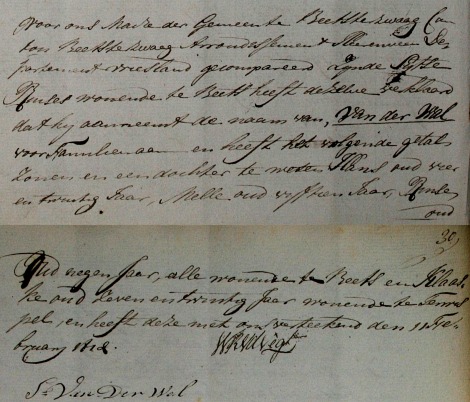 voor ons Maire der Gemeente Beetsterzwaag Can
ton Beetsterzwaag Arrondissement Heerenveen De
partement Vriesland gecompareerd zynde
Rinses wonende te Beets heeft dezelve verklaard
dat hy aanneemt de naam van, Van der Wal
voor Familienaam en heeft het volgende getal
Zonen en een dochter te weten Hans oud vier
en twintig Jaar, Melle oud vyftien Jaar, Rinse,
oud
30,
Oud negen Jaar, alle wonende te Beets en Klaas
ke oud zeven en twintig Jaar wonende te
pel, en heeft deze met ons vertekend den 11 Feb
bruary 1812.
Van Der Wal